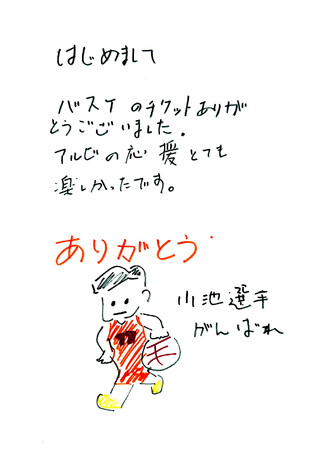 はじめまして
バスケのチケットありが
とうございました。
アルビの応援とても
楽しかったです。
ありがとう
小池選手
がんばれ